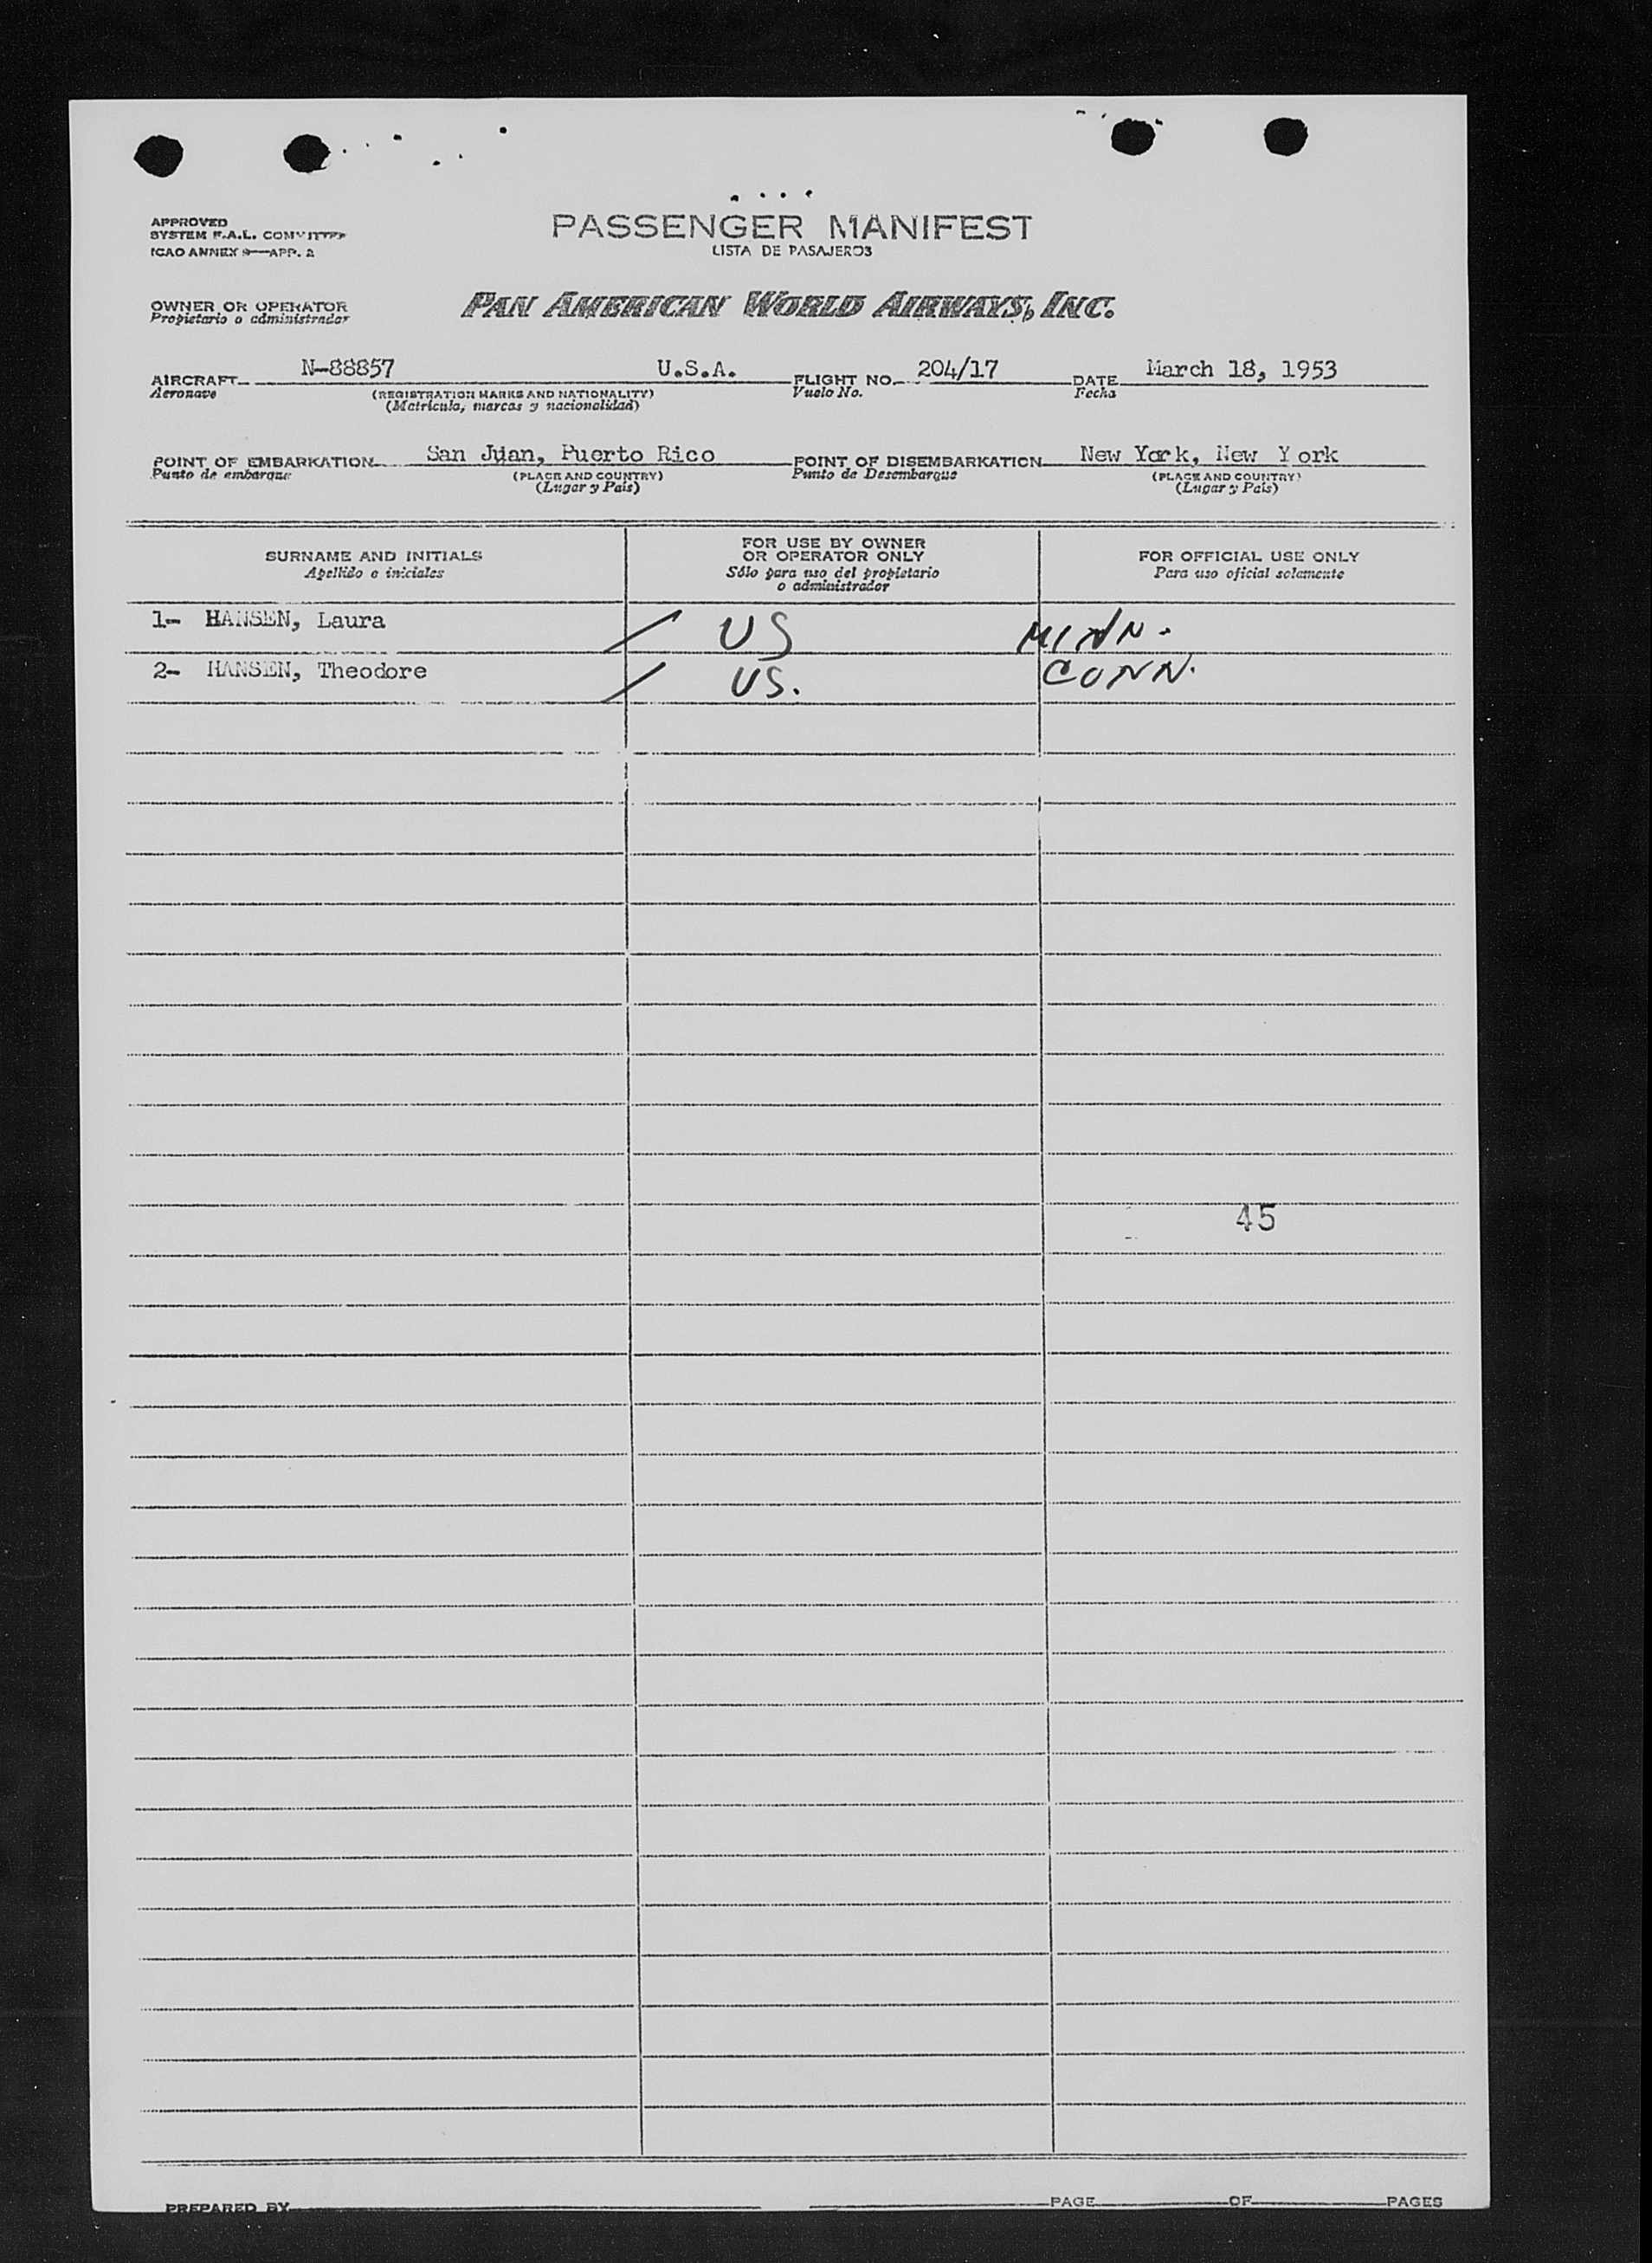 APPROVED
SYSTEM F.A.L. COMMITTEE
ICAO ANNEX 9—APP. 2
PASSENGER MANIFEST
LISTA DE PASAJEROS
OWNER OR OPERATOR
Propietario o administrador
PAN AMERICAN WORLD AIRWAYS, INC.
AIRCRAFT N-88857 U.S.A. FLIGHT NO. 204/17 DATE March 18, 1953
Aeronave (REGISTRATION MARKS AND NATIONALITY) Vuelo No. Fecha
(Matricula, marcas y nacionalidad)
POINT OF EMBARKATION San Juan, Puerto Rico POINT OF DISEMBARKATION New York, New York
Punto de embarque (PLACE AND COUNTRY) Punto de Desembarque (PLACE AND COUNTRY)
(Lugar y País) (Lugar y País)
SURNAME AND INITIALS
Apellido e iniciales
FOR USE BY OWNER
OR OPERATOR ONLY
Sólo para uso del propietario
o administrador
FOR OFFICIAL USE ONLY
Para uso oficial solamente
1- HANSEN, Laura / US MINN.
2- HANSEN, Theodore / US. CONN.
45
PREPARED BY PAGE OF PAGES